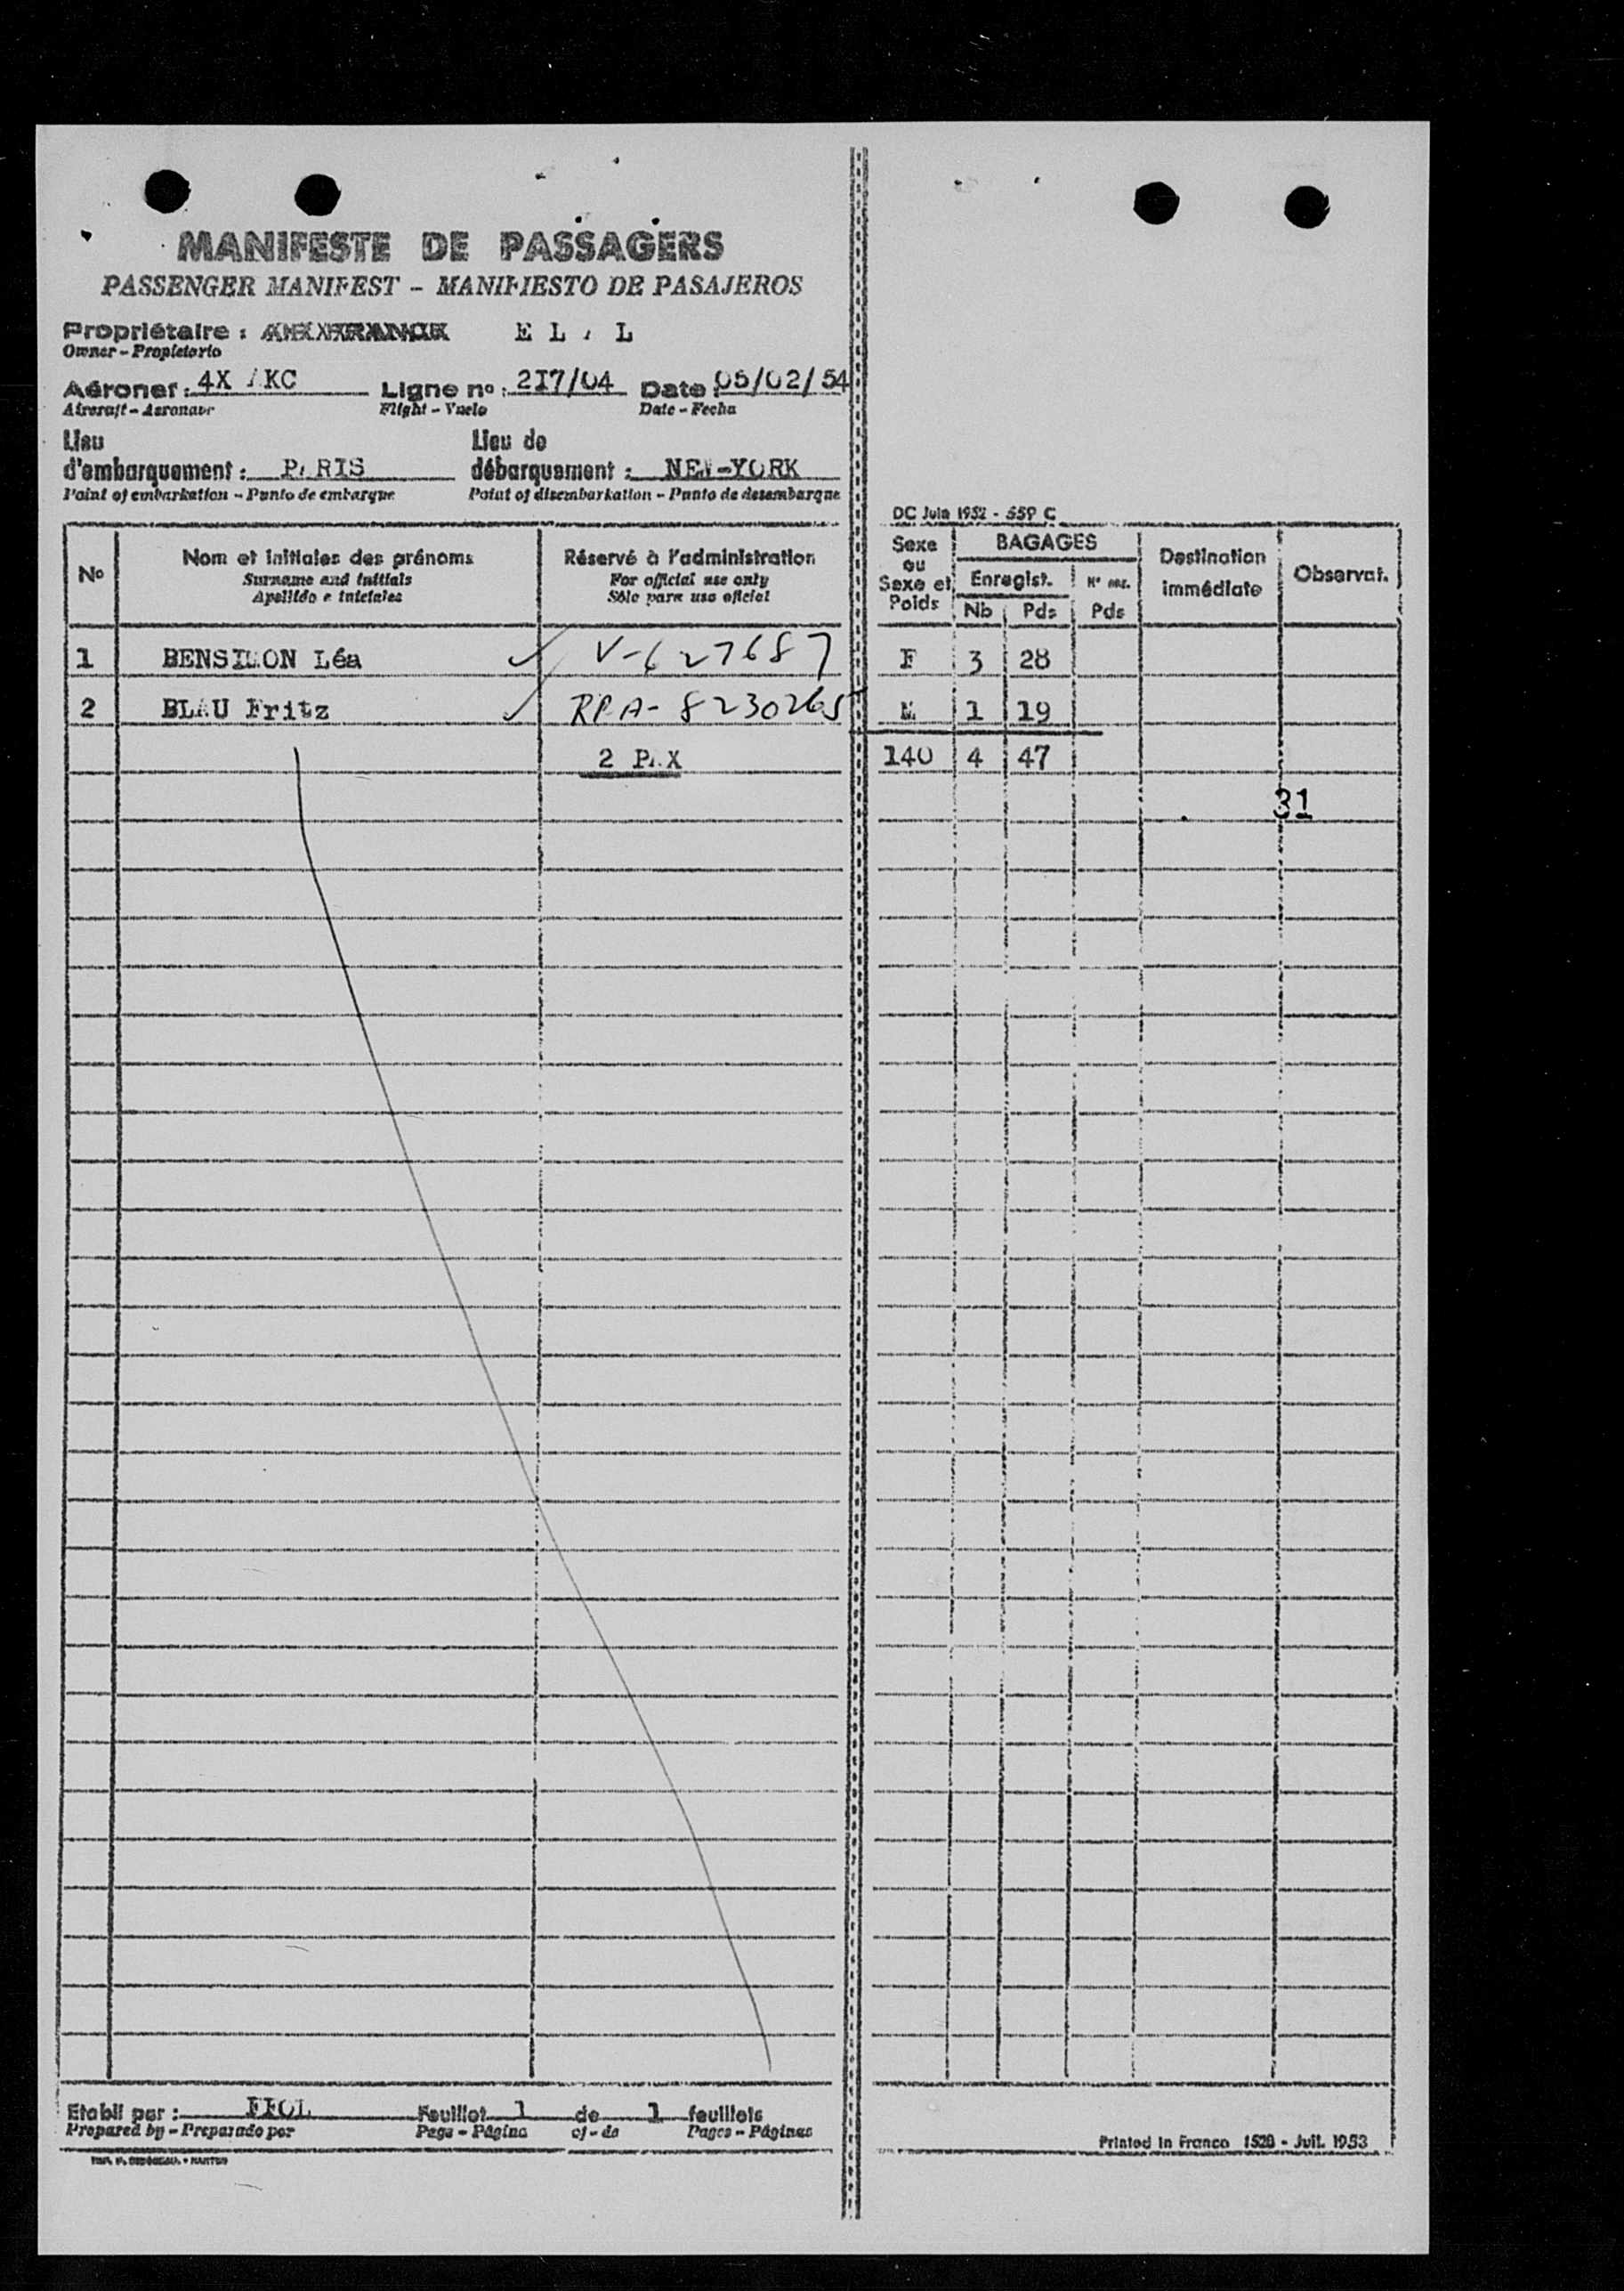 MANIFESTE DE PASSAGERS
PASSENGER MANIFEST - MANIFIESTO DE PASAJEROS
Propriétaire : AIR FRANCE E L A L
Owner - Propietario
Aéronef : 4X AKC Ligne nº : 2I7/04 Date : 05/02/54
Aircraft - Aeronave Flight - Vuelo Date - Fecha
Lieu d'embarquement : PARIS
Point of embarkation - Punto de embarque
Lieu de débarquement : NEW-YORK
Point of disembarkation - Punto de desembarque
DC Juin 1952 - 559 C
Nº
Nom et initiales des prénoms
Surname and initials
Apellido e iniciales
Réservé à l'administration
For official use only
Sólo para uso oficial
Sexe ou Sexe et Poids
BAGAGES
Enregist.
Nb Pds
Pds
Destination immédiate
Observat.
1 BENSIMON Léa V-627687 F 3 28
2 BLAU Fritz RPA-8230265 M 1 19
2 PAX 140 4 47
31
Etabli par : Feuillet 1 de 1 feuillets
Prepared by - Preparado por Page - Página of - de Pages - Páginas
Printed in France 1528 - Juil. 1953